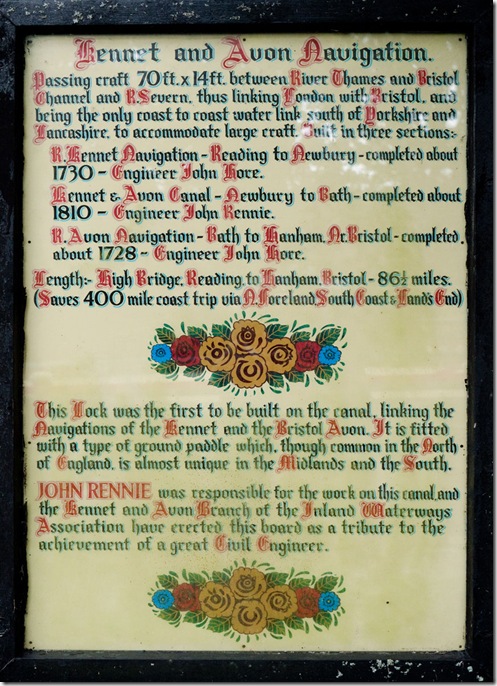 Kennet and Avon Navigation.
Passing craft 70 ft. x 14 ft. between River Thames and Bristol
Channel and R.Severn, thus linking London with Bristol, and
being the only coast to coast water link south of Yorkshire and
Lancashire, to accommodate large craft. Built in three sections:-
R.Kennet Navigation - Reading to Newbury - completed about
1730 - Engineer John Hore.
Kennet & Avon Canal - Newbury to Bath - completed about
1810 - Engineer John Rennie.
R.Avon Navigation - Bath to Hanham, Nr.Bristol - completed
about 1728 - Engineer John Hore.
Length:- High Bridge, Reading, to Hanham, Bristol - 86½ miles.
(Saves 400 mile coast trip via N.Foreland South Coast & Land's End)
This Lock was the first to be built on the canal, linking the
Navigations of the Kennet and the Bristol Avon. It is fitted
with a type of ground paddle which, though common in the North
of England, is almost unique in the Midlands and the South.
JOHN RENNIE was responsible for the work on this canal, and
the Kennet and Avon Branch of the Inland Waterways
Association have erected this board as a tribute to the
achievement of a great Civil Engineer.